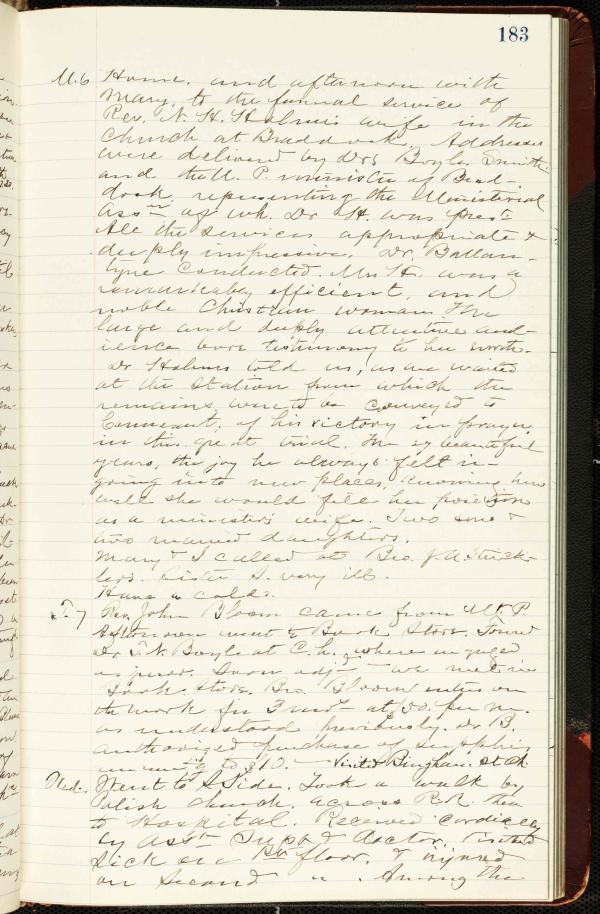 183
M. 6 Home, and afternoon with
Mary, to the funeral service of
Rev. N. H. Holmes wife in the
Church at Braddock. Addresses
were delivered by Drs Boyle, Smith
and the U. P. minister of Brad-
dock, representing the Ministerial
Assn of wh. Dr H. was prest.
All the services appropriate &
deeply impressive. Dr. Ballan-
tyne conducted. Mrs H. was a
remarkably efficient, and
noble Christian woman. The
large and deeply attentive aud-
ience bore testimony to her worth.
Dr Holmes told us, as we waited
at the station from which the
remains were to be conveyed to
Conneaut, of his victory in prayer,
in this great trial. The 27 beautiful
years, the joy he always felt in
going into new places, knowing how
well she would fill her position
as a minister's wife. Two sons &
two married daughters.
Mary & I called at Bro. J. A. Strick-
lers. Sister S. very ill.
Have a cold.
T. 7 Rev. John Bloom came from Mt. P.
Afternoon went to Book Store. Found
Dr. T. N. Boyle at C. h., where engaged
as juror. Soon adjd we met in
Book Store. Bro. Bloom enters on
the work for 2 mos at 50. per m.
as understood previously. Dr B.
authorized purchase of
to $10. — Visited Bingham St Ch
Wed. Went to S. Side. Took a walk by
Polish Church, across R. R. then
to Hospital. Received cordially
by Asst Supt & doctor. Visited
sick on 1st floor, & injured
on second " . Among the